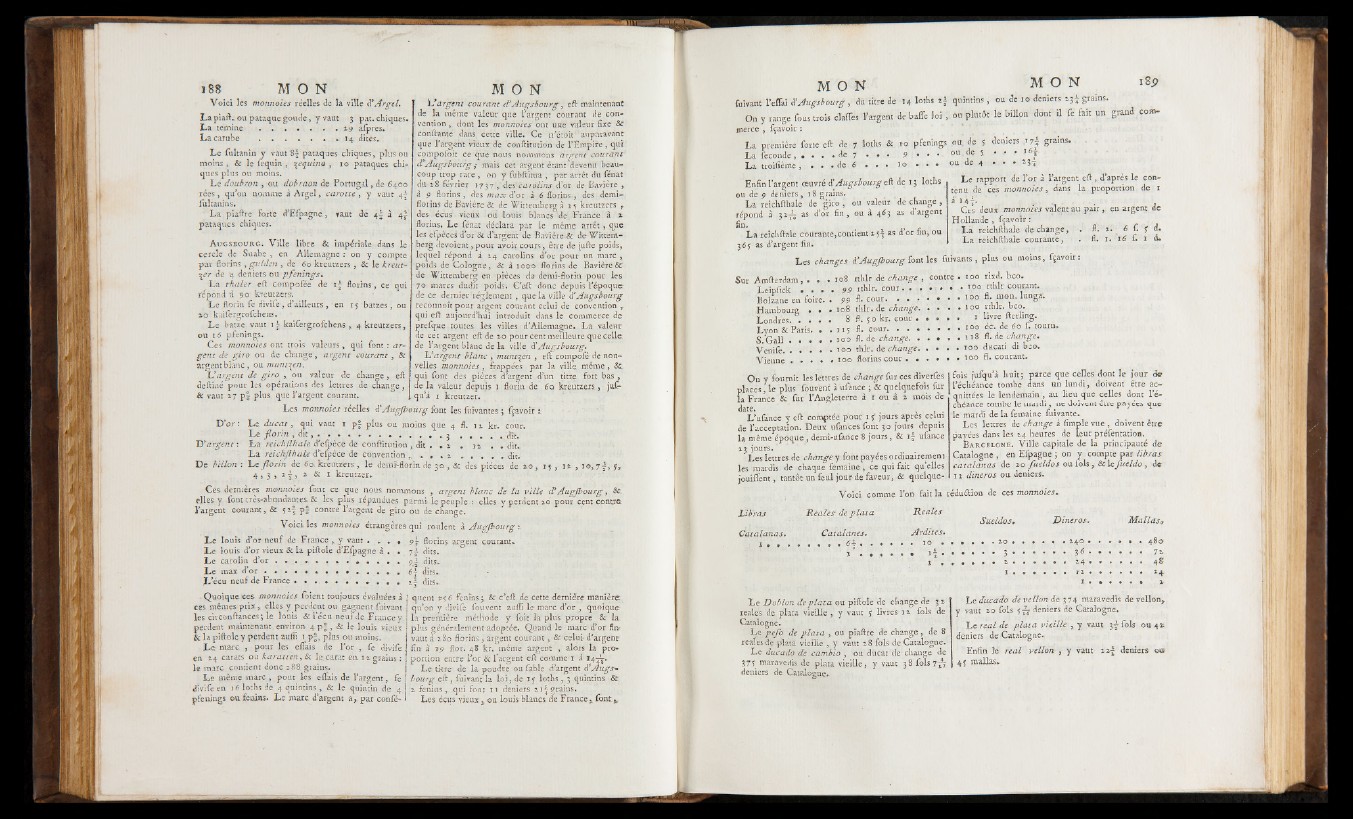 188 MON MON
Voici les monnoies réelles de la ville d'Argel.
La piast. ou pataque gourde, y vaut 3 pat. chiques.
La temine . . . . . . . . 29 aspres.
La carube . . . . . . . . 14 dites.
Le sultanin y vaut 8½ pataques chiques, plus ou
moins, & le sequin, zequina, 10 pataques chi-
ques plus ou moins.
Le doubron, ou dobraon de Portugal, de 6400
rées, qu'on nomme à Argel, carotte, y vaut 4½
sultanins.
La piastre forte d'Espagne, vaut de 4½ à 4¾
pataques chiques.
AUGSBOURG. Ville libre & impériale dans le
cercle de Suabe, en Allemagne : on y compte
par florins, gulden, de 60 kreutzers, & le kreut-
zer de 4 deniers ou pfenings.
La rhaler est composée de 1½ florins, ce qui
répond à 90 kreutzers.
Le florin se divise, d'ailleurs, en 15 batzes, ou
20 kaisergroschens.
Le batze vaut 1⅓ kaisergroschens, 4 kreutzers,
ou 16 pfenings.
Ces monnoies ont trois valeurs, qui sont : ar-
gent de giro ou de change, argent courant, &
argent blanc, ou muntzen.
L'argent de giro, ou valeur de change, est
destiné pour les opérations des lettres de change,
& vaut 27 p% plus que l'argent courant.
L'argent courant d'Augsbourg, est maintenant
de la même valeur que l'argent courant de con-
vention, dont les monnoies ont une valeur fixe &
constante dans cette ville. Ce n'étoit auparavant
que l'argent vieux de constitution de l'Empire, qui
composoit ce que nous nommons argent courant
d'Augsbourg ; mais cet argent étant devenu beau-
coup trop rare, on y substitua, par arrêt du sénat
du 28 février 1737, des carolins d'or de Bavière,
à 9 florins, des max d'or à 6 florins, des demi-
florins de Bavière & de Wittemberg à 15 kreutzers,
des écus vieux ou louis blancs de France à 2
florins. Le sénat déclara par le même arrêt, que
les espèces d'or & d'argent de Bavière & de Wittem-
berg devoient, pour avoir cours, être de juste poids,
lequel répond à 24 carolins d'or pour un marc,
poids de Cologne, & à 1000 florins de Bavière &
de Wittemberg en pièces de demi-florin pour les
70 marcs dudit poids. C'est donc depuis l'époque
de ce dernier réglement, que la ville d'Augsbourg
reconnoît pour argent courant celui de convention,
qui est aujourd'hui introduit dans le commerce de
presque toutes les villes d'Allemagne. La valeur
de cet argent est de 20 pour cent meilleure que celle
de l'argent blanc de la ville d'Augsbourg.
L'argent blanc, muntzen, est composé de nou-
velles monnoies, frappées par la ville même, &
qui sont des pièces d'argent d'un titre fort bas,
de la valeur depuis 1 florin de 60 kreutzers, jus-
qu'à 1 kreutzer.
Les monnoies réelles d'Augsbourg sont les suivantes ; sçavoir :
D'or : Le ducat, qui vaut 1 p% plus ou moins que 4 fl. 12 kr. cour.
Le florin, dit, . . . . . . . . . . 3 . . . . . dit.
D'argent : La reichsthale d'espèce de constitution, dit . . 2 . 12 . . dit.
La reichsthale d'espèce de convention, . . . 2 . . . . . dit.
De billon : Le florin de 60 kreutzers, le demi-florin de 30, & des pièces de 20, 15, 12, 10, 7½, 5,
4, 3, 2½, 2 & 1 kreutzer.
Ces dernières monnoies sont ce que nous nommons, argent blanc de la ville d'Augsbourg, &
elles y sont très-abondantes & les plus répandues parmi le peuple : elles y perdent 20 pour cent contre
l'argent courant, & 52½ p% contre l'argent de giro ou de change.
Voici les monnoies étrangères qui roulent à Augsbourg :
Le louis d'or neuf de France, y vaut . . . . 9¼ florins argent courant.
Le louis d'or vieux & la pistole d'Espagne à . . 7½ dits.
Le carolin d'or . . . . . . . . . . . . 9¼ dits.
Le max d'or . . . . . . . . . . . . . 6⅙ dits.
L'écu neuf de France . . . . . . . . . . 2⅓ dits.
Quoique ces monnoies soient toujours évaluées à
ces mêmes prix, elles y perdent ou gagnent suivant
les circonstances ; le louis & l'écu neuf de France y
perdent maintenant environ 4 p%, & le louis vieux
& la pistole y perdent aussi 3 p%, plus ou moins.
Le marc, pour les essais de l'or, se divise
en 24 carats ou karatten, & le carat en 12 grains :
le marc contient donc 288 grains.
Le même marc, pour les essais de l'argent, se
divise en 16 loths de 4 quintins, & le quintin de 4
pfenings ou fenins. Le marc d'argent a, par consé-
quent 256 fenins ; & c'est de cette dernière manière
qu'on y divise souvent aussi le marc d'or, quoique
la première méthode y soit la plus propre & la
plus généralement adoptée. Quand le marc d'or fin
vaut à 280 florins, argent courant, & celui d'argent
fin à 19 flor. 48 kr. même argent, alors la pro-
portion entre l'or & l'argent est comme 1 à 14
Le titre de la poudre ou sable d'argent d'Augs-
bourg est, suivant la loi, de 15 loths, 3 quintins &
2 fenins, qui font 11 deniers 21 grains.
Les écus vieux, ou louis blancs de France, sont,
MON MON 189
suivant l'essai d'Augsbourg, du titre de 14 loths 2½ quintins, ou de 10 deniers 23¼ grains.
On y range sous trois classes l'argent de basse loi, ou plutôt le billon dont il se fait un grand com-
merce, sçavoir :
La première sorte est de 7 loths & 10 pfenings ou de 5 deniers 17½ grains.
La seconde, . . . . de 7 . . . 9 . . . ou de 5 . . . 16½
La troisième, . . . de 6 . . . 10 . . . ou de 4 . . . 23½
Enfin l'argent œuvré d'Augsbourg est de 13 loths
ou de 9 deniers, 18 grains.
La reichsthale de giro, ou valeur de change,
répond à 32 as d'or fin, ou à 463 as d'argent
fin.
La reichsthale courante, contient 25½ as d'or fin, ou
365 as d'argent fin.
Le rapport de l'or à l'argent est, d'après le con-
tenu de ces monnoies, dans la proportion de 1
à 14½.
Ces deux monnoies valent au pair, en argent de
Hollande, sçavoir :
La reichsthale de change, . fl. 2. 6 s. 5 d.
La reichsthale courante, . fl. 1. 16 s. 1 d.
Les changes d'Augsbourg sont les suivants, plus ou moins, sçavoir :
Sur Amsterdam, . . . 108 rthlr de change, contre . 100 rixd. bco.
Leipsick . . . . 99 rthlr. cour. . . . . . . 100 rthlr courant.
Bolzane en foire. . 99 fl. cour. . . . . . . . 100 fl. mon. lunga.
Hambourg . . . 108 rthlr. de change. . . . . 100 rthlr. bco.
Londres. . . . . 8 fl. 50 kr. cour . . . . . 1 livre sterling.
Lyon & Paris. . . 115 fl. cour. . . . . . . . 100 éc. de 60 s. tourn.
S. Gall . . . . . 100 fl. de change. . . . . . 118 fl. de change.
Venise. . . . . . 100 thlr. de change. . . . . 100 ducati di bco.
Vienne . . . . . 100 florins cour . . . . . . 100 fl. courant.
On y fournit les lettres de change sur ces diverses
places, le plus souvent à usance ; & quelquefois sur
la France & sur l'Angleterre à 1 ou à 2 mois de
date.
L'usance y est comptée pour 15 jours après celui
de l'acceptation. Deux usances sont 30 jours depuis
la même époque, demi-usance 8 jours, & 1½ usance
23 jours.
Les lettres de change y sont payées ordinairement
les mardis de chaque semaine, ce qui fait qu'elles
jouissent, tantôt un seul jour de faveur, & quelque-
fois jusqu'à huit ; parce que celles dont le jour de
l'échéance tombe dans un lundi, doivent être ac-
quittées le lendemain, au lieu que celles dont l'é-
chéance tombe le mardi, ne doivent être payées que
le mardi de la semaine suivante.
Les lettres de change à simple vue, doivent être
payées dans les 24 heures de leur présentation.
BARCELONE. Ville capitale de la principauté de
Catalogne, en Espagne ; on y compte par libras
catalanas de 20 sueldos ou sols, & le sueldo, de
12 dineros ou deniers.
Voici comme l'on fait la réduction de ces monnoies.
Libras Reales de plata Reales
Sueldos. Dineros. Mallas.
Catalanas. Catalanes. Ardites.
1 . . . . . . . . 6⅔ . . . . . . 10 . . . . . . 20 . . . . . . 240 . . . . . . 480
1 . . . . . . 1½ . . . . . . 3 . . . . . . 36 . . . . . . 72
1 . . . . . . 2 . . . . . . 24 . . . . . . 48
1 . . . . . . 12 . . . . . . 24
1 . . . . . . 2
Le Doblon de plata ou pistole de change de 32
reales de plata vieille, y vaut 5 livres 12 sols de
Catalogne.
Le peso de plata, ou piastre de change, de 8
reales de plata vieille, y vaut 28 sols de Catalogne.
Le ducado de cambio, ou ducat de change de
375 maravedis de plata vieille, y vaut 38 sols 7
deniers de Catalogne.
Le ducado de vellon de 374 maravedis de vellon,
y vaut 20 sols 5 deniers de Catalogne.
Le real de plata vieille, y vaut 3½ sols ou 42
deniers de Catalogne.
Enfin le real vellon, y vaut 22½ deniers ou
45 mallas.